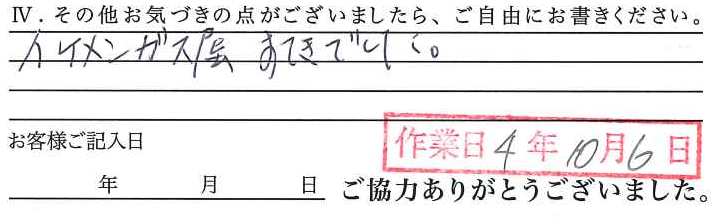 Ⅳ．その他お気づきの点がございましたら、ご自由にお書きください。
イケメンガス屋 すてきでした。
お客様ご記入日
作業日 4年10月6日
年 月 日
ご協力ありがとうございました。